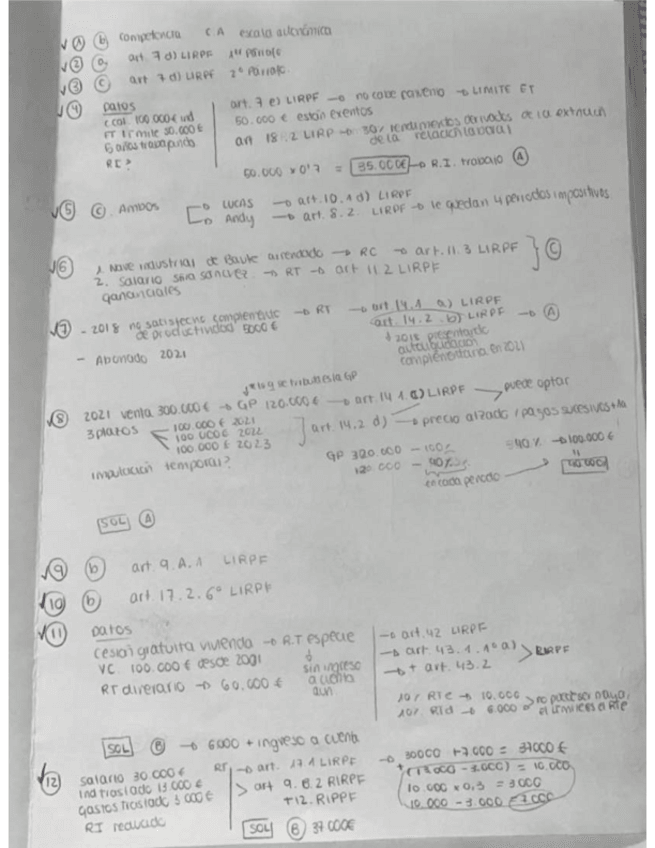 √ ① b) competencia C.A escala autonómica
√ ② a, art. 7 d) LIRPF 1er Párrafo
√ ③ c art 7 d) LIRPF 2º Párrafo.
√ ④ DATOS
100.000€ ind
ET límite 50.000€
5 años trabajando
RI?
art. 7 e) LIRPF → no cabe → LIMITE ET
50.000 € están exentos
art 18.2 LIRP → 30% rendimientos derivados de la extinción de la relación laboral
50.000 x 0'7 = 35.000€ → R.I. trabajo Ⓐ
√ ⑤ ⓒ. Ambos
LUCAS → art. 10.1 d) LIRPF
Andy → art. 8.2. LIRPF → le quedan 4 periodos impositivos
√ ⑥ 1. Nave industrial de arrendado → RC → art. 11.3 LIRPF
2. Salario → RT → art 11.2 LIRPF
gananciales
ⓒ
√ ⑦ - 2018 no satisfecho complemento de productividad 5000€ → RT → art 14.1 a) LIRPF
art. 14.2. b) LIRPF → Ⓐ
2018 presentando autoliquidación complementaria en 2021
- Abonado 2021
es lo que tributaría la GP
√ ⑧ 2021 venta 300.000€ → GP 120.000€ → art. 14 1 LIRPF → puede optar
3 plazos
100.000€ 2021
100.000€ 2022
100.000€ 2023
art. 14.2 d) → precio alzado / pagos sucesivos
imputación temporal?
GP 320.000 - 100%
120.000 - 40%
en cada periodo
= 40% → 100.000€
SOL Ⓐ
√ ⑨ ⓑ art. 9. A. 1 LIRPF
√ ⑩ ⓑ art. 17.2.6º LIRPF
√ ⑪ DATOS
cesión gratuita vivienda → R.T especie
VC. 100.000€ desde 2001
sin ingreso a cuenta aun
RT dinerario → 60.000€
→ art. 42 LIRPF
→ art. 43.1.1º a)
→ + art. 43.2
LIRPF
10% RTe → 10.000
10% RTd → 6.000
SOL Ⓑ → 6000 + ingreso a cuenta
√ ⑫ salario 30.000€
ind traslado 13.000€
gastos traslado 3.000€
RI reducido
RT → art. 17.1 LIRPF
> art 9. B.2 RIRPF
+ 12. RIPPF
SOL Ⓑ 37 000€
→ 30000 + 7.000 = 37000€
(13.000 - 3.000) = 10.000
10.000 x 0,3 = 3000
10.000 - 3.000 = 7.000